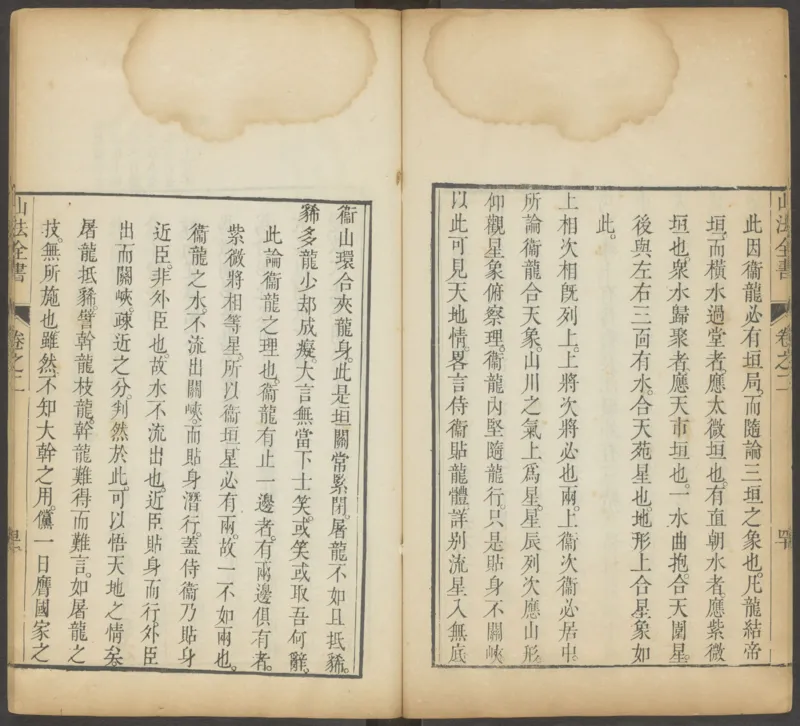 山法全書
卷之二
此因衞龍必有垣局。而隨論三垣之象也。凡龍結帝
垣。而橫水過堂者。應太微垣也。有直朝水者。應紫微
垣也。衆水歸聚者。應天市垣也。一水曲抱。合天圍星。
後與左右三面有水。合天苑星也。地形上合星象如
此。
上相次相旣列上。上將次將必也兩。上衞次衞必居中。
所論衞龍合天象。山川之氣上爲星。星辰列次應山形。
仰觀星象俯察理。衞龍內堅隨龍行。只是貼身不關峽
以此可見天地情。畧言侍衞貼龍體。詳別流星入無底
衞山環合夾龍身。此是垣關常緊閉。屠龍不如且抵豨。
豨多龍少却成癡。大言無當下士笑。或笑或取吾何辭。
此論衞龍之理也。衞龍有止一邊者。有兩邊俱有者。
紫微將相等星。所以衞垣星必有兩。故一不如兩也。
衞龍之水。不流出關峽。而貼身潛行。蓋侍衞乃貼身
近臣。非外臣也。故水不流出也。近臣貼身而行。外臣
出而關峽。疎近之分。判然於此。可以悟天地之情矣。
屠龍抵豨。譬幹龍枝龍。幹龍難得而難言。如屠龍之
技。無所施也。雖然。不知大幹之用。儻一日膺國家之
山法全書
卷之二